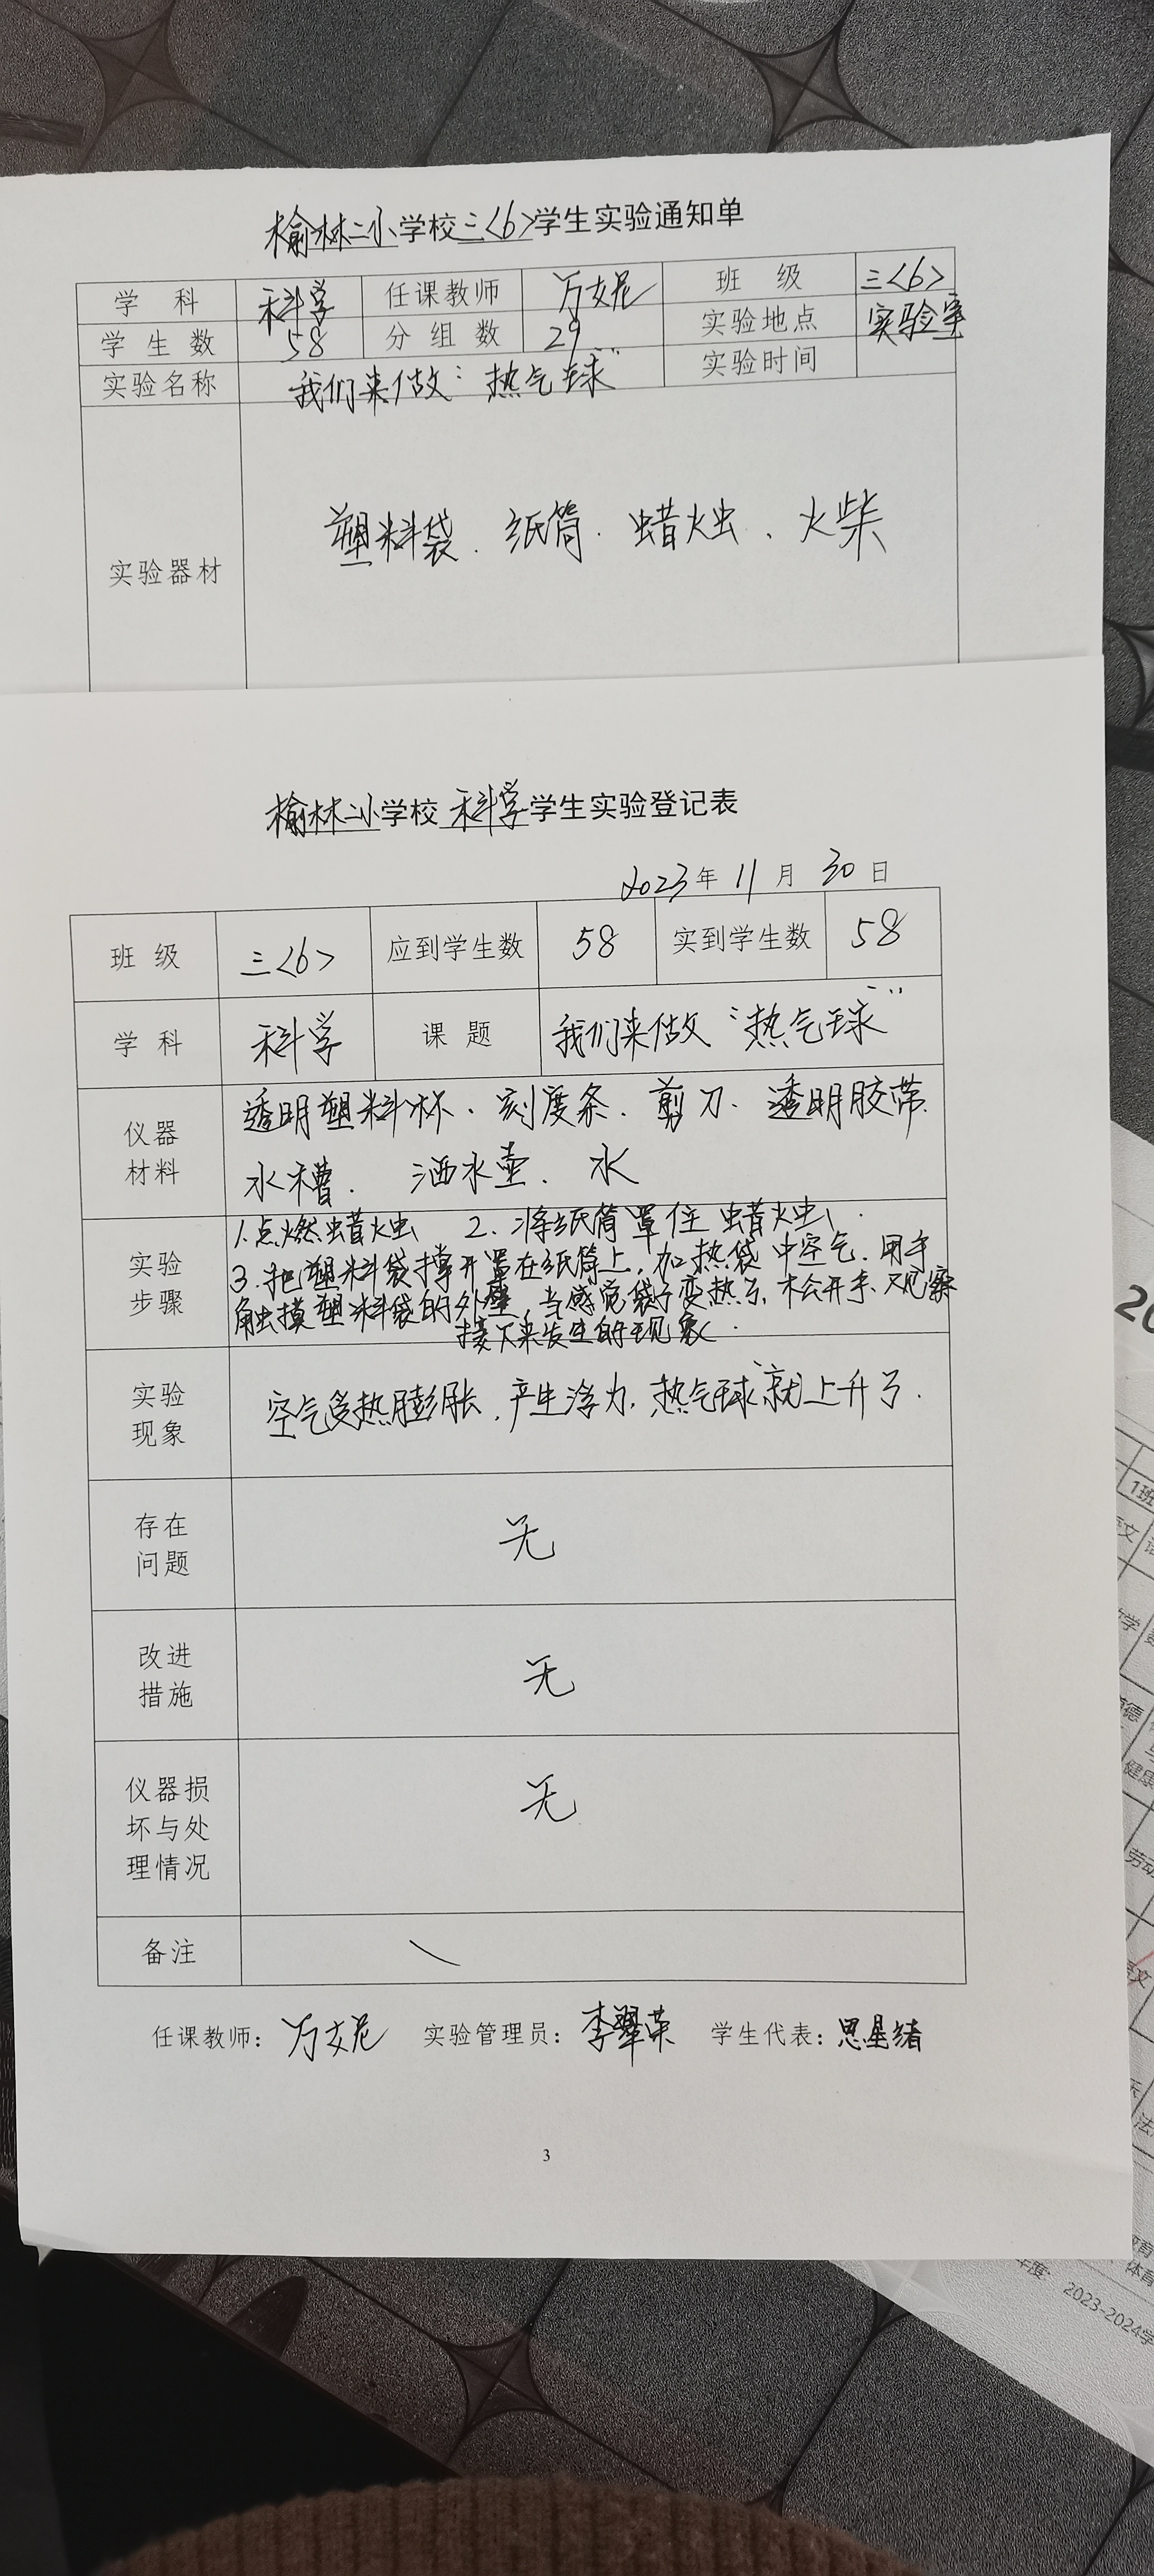 榆林二小学校三〈6〉学生实验通知单
学 科 科学 任课教师 万文尼 班 级 三〈6〉
学 生 数 58 分 组 数 29 实验地点 实验室
实验名称 我们来做“热气球” 实验时间
实验器材 塑料袋、纸筒、蜡烛、火柴
榆林二小学校 科学学生实验登记表
2023年 11 月 30 日
班 级 三〈6〉 应到学生数 58 实到学生数 58
学 科 科学 课 题 我们来做“热气球”
仪器
材料
透明塑料杯、刻度条、剪刀、透明胶带
水槽、洒水壶、水
实验
步骤
1.点燃蜡烛 2.将纸筒罩住蜡烛
3.把塑料袋撑开罩在纸筒上,加热袋中空气.用手
触摸塑料袋的外壁,当感觉袋子变热了,松开手.观察
接下来发生的现象.
实验
现象
空气受热膨胀,产生浮力,热气球就上升了.
存在
问题
无
改进
措施
无
仪器损
坏与处
理情况
无
备注
任课教师: 实验管理员: 李翠荣 学生代表:
3
20
1班
健康
劳动
体育
年度: 2023-2024学